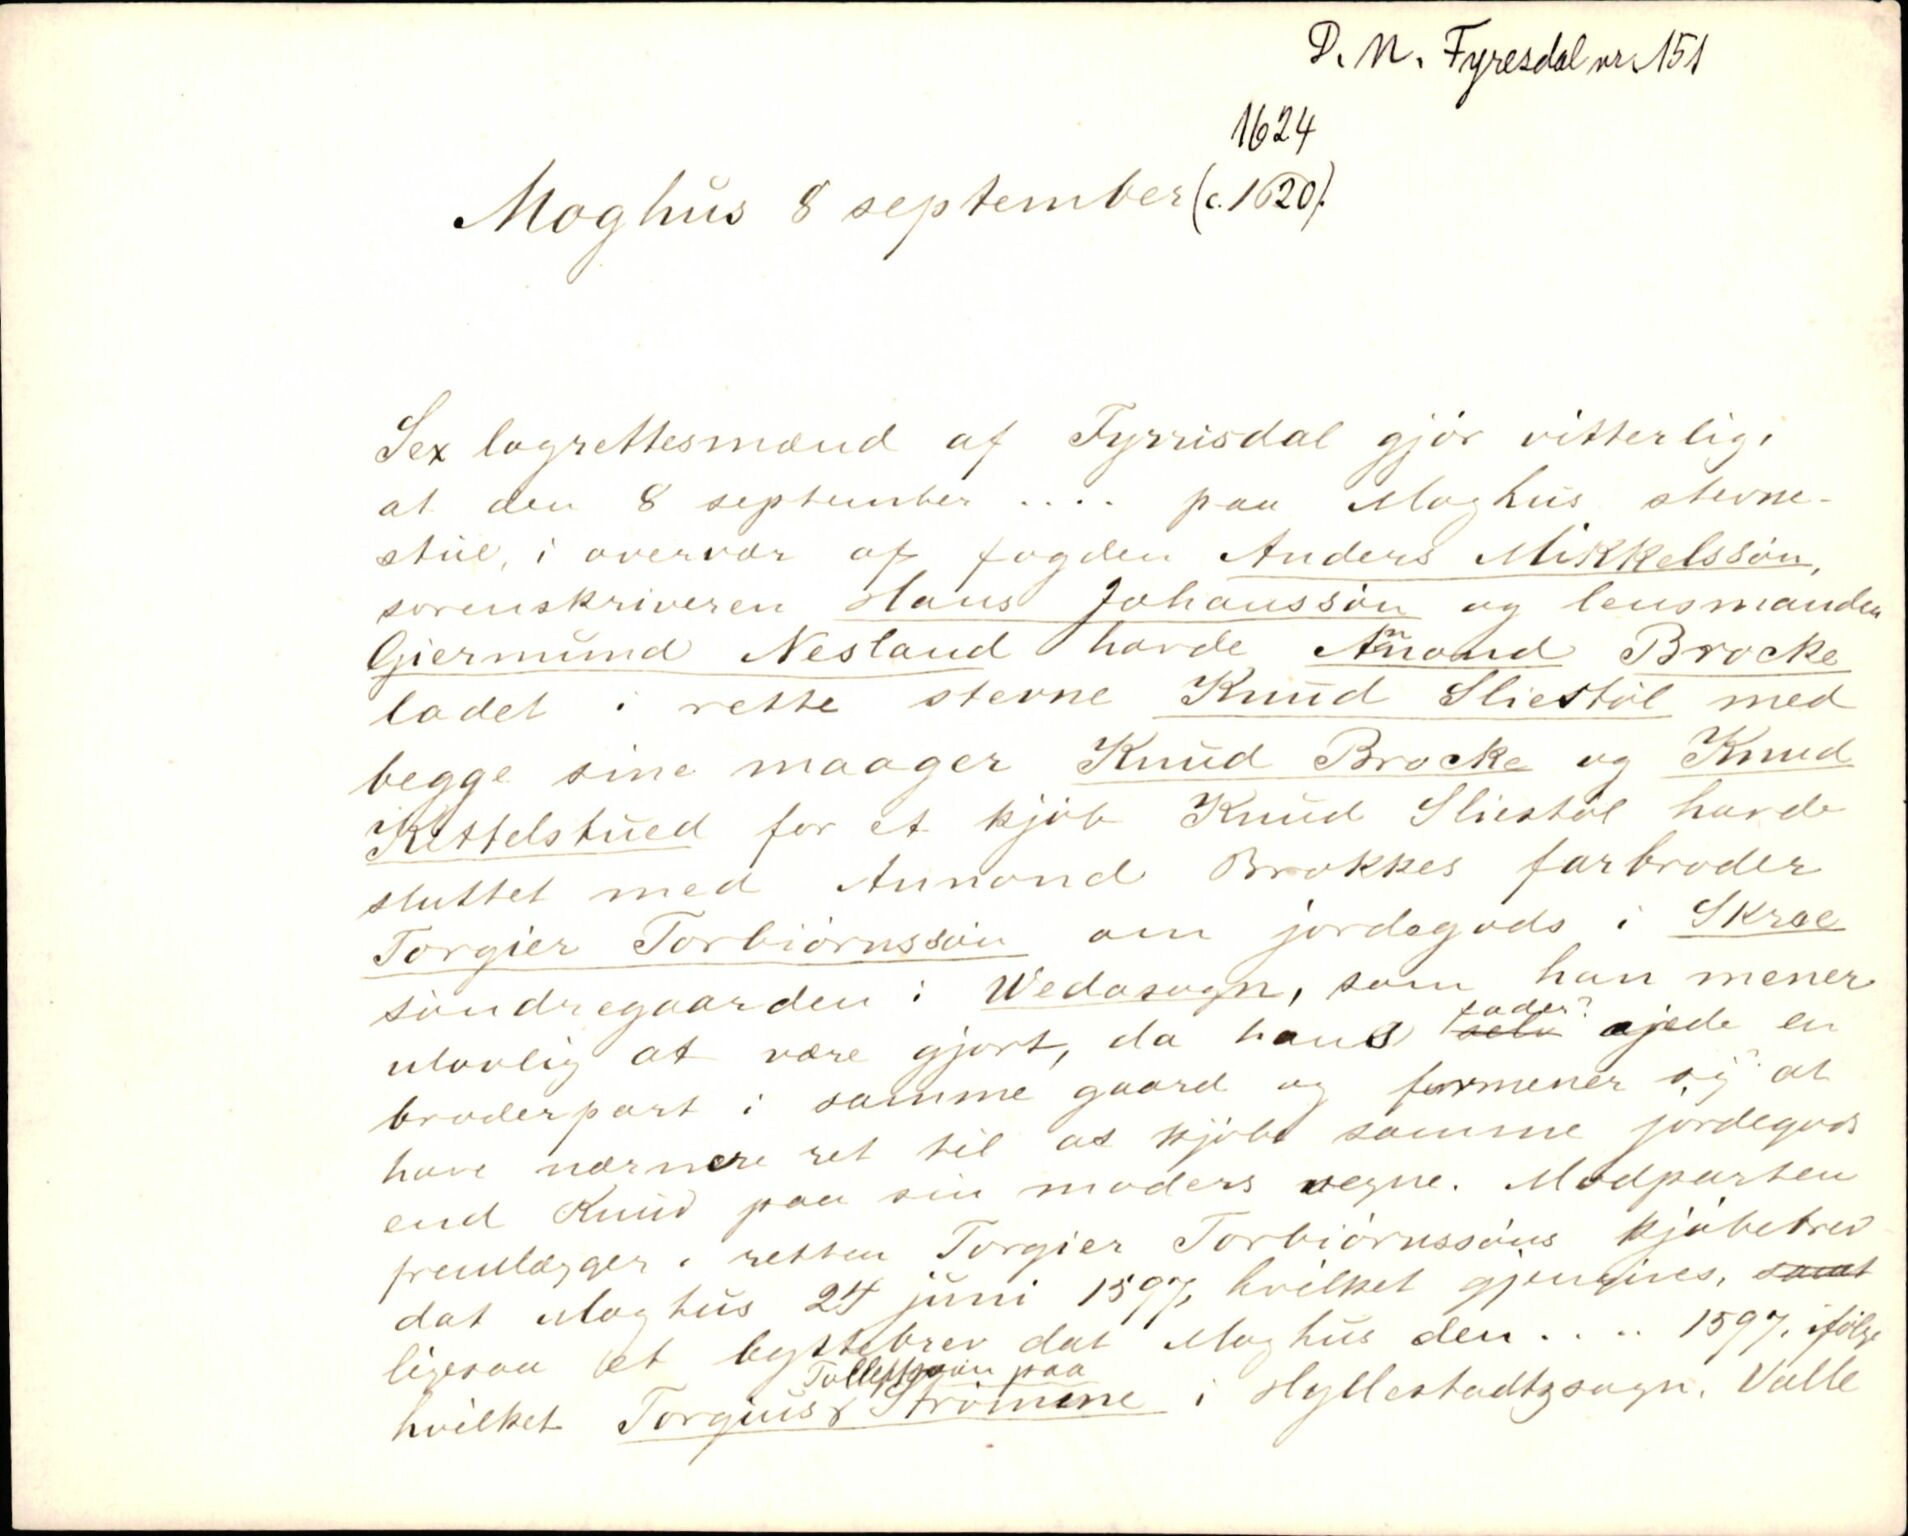 D. N. Fyresdal nr. 151
1624
Moghus 8 september (c. 1620).
Sex lagrettesmænd af Fyrrisdal gjör vitterlig,
at den 8 september .... paa Moghus stevne-
stue, i overvær af fogden Anders Mikkelssön,
sorenskriveren Hans Johanssön og lensmanden
Giermund Nesland havde Annond Brocke
ladet i rette stevne Knud Sliestöl med
begge sine maager Knud Brocke og Knud
Kettelstued for et kjöb Knud Sliestöl havde
sluttet med Annond Brokkes farbroder
Torgier Torbiörnssön om jordegods i Skrae
söndregaarden i Wedasogn, som han mener
ulovlig at være gjort, da hans selv fader? ejede en
broderpart i samme gaard og formener sig at
have nærmere ret til at kjöbe samme jordegods
end Knud paa sin moders vegne. Modparten
fremlægger i retten Torgier Torbiörnssöns kjöbebrev
dat Moghus 24 juni 1597, hvilket gjengives, samt
ligesaa et byttebrev dat Moghus den .... 1597, ifölge
hvilket Torgiuss Tollefssön paa Strömme i Hyllestadtzsogn, Valle